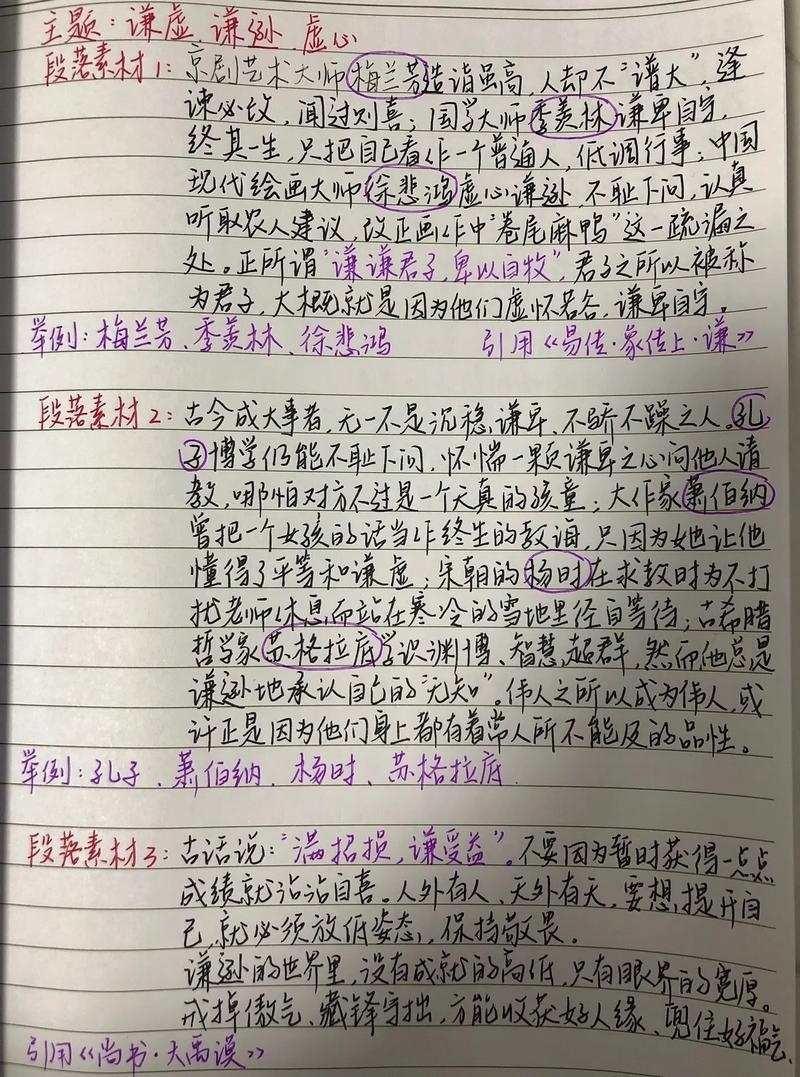 主题：谦虚、谦逊、虚心
段落素材1：京剧艺术大师梅兰芳造诣虽高，人却不“谱大”，逢
谏必改，闻过则喜；国学大师季羡林谦卑自守，
终其一生，只把自己看作一个普通人，低调行事；中国
现代绘画大师徐悲鸿虚心谦逊，不耻下问，认真
听取农人建议，改正画作中“卷尾麻鸭”这一疏漏之
处。正所谓“谦谦君子，卑以自牧”，君子之所以被称
为君子，大概就是因为他们虚怀若谷，谦卑自守。
举例：梅兰芳、季羡林、徐悲鸿 引用《易传·象传上·谦》
段落素材2：古今成大事者，无一不是沉稳、谦卑、不骄不躁之人。孔
子博学仍能不耻下问，怀揣一颗谦卑之心向他人请
教，哪怕对方不过是一个天真的孩童；大作家萧伯纳
曾把一个女孩的话当作终生的教诲，只因为她让他
懂得了平等和谦虚；宋朝的杨时在求教时为不打
扰老师休息而站在寒冷的雪地里径自等待；古希腊
哲学家苏格拉底学识渊博、智慧超群，然而他总是
谦逊地承认自己的“无知”。伟人之所以成为伟人，或
许正是因为他们身上都有着常人所不能及的品性。
举例：孔子、萧伯纳、杨时、苏格拉底
段落素材3：古话说：“满招损，谦受益”。不要因为暂时获得一点点
成绩就沾沾自喜。人外有人、天外有天，要想提升自
己，就必须放低姿态，保持敬畏。
谦逊的世界里，没有成就的高低，只有眼界的宽厚。
戒掉傲气、藏锋守拙，方能收获好人缘、兜住好福气。
引用《尚书·大禹谟》